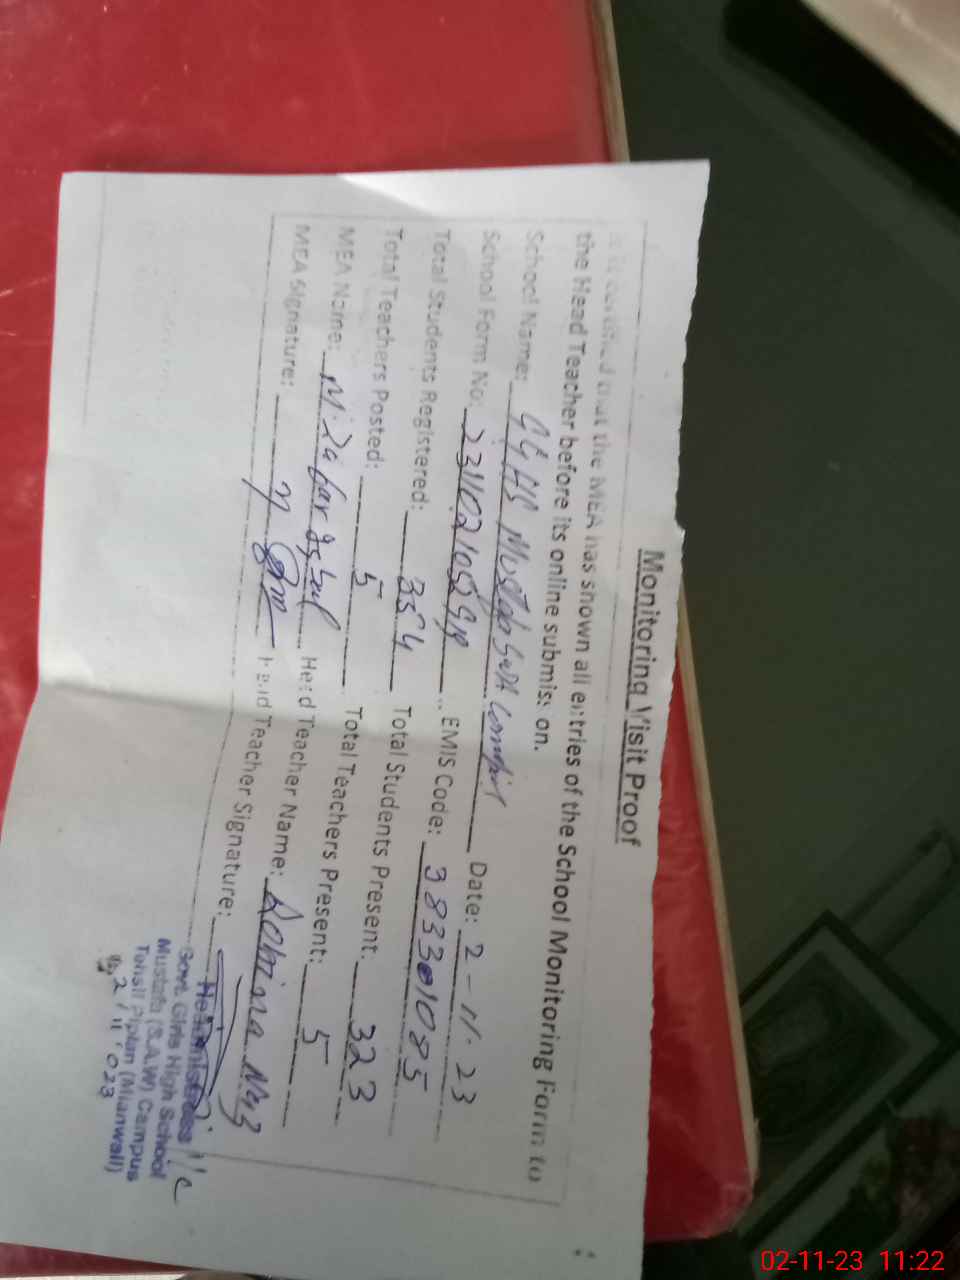 Monitoring Visit Proof
is it certified that the MEA has shown all entries of the School Monitoring Form to
the Head Teacher before its online submission.
School Name: GGHS Mustafa SAW Date: 2-11-23
School Form No: EMIS Code: 383301085
Total Students Registered: 354 Total Students Present: 323
Total Teachers Posted: 5 Total Teachers Present: 5
MEA Name: M. Zafar Iqbal Head Teacher Name: Robina Niaz
MEA Signature: Head Teacher Signature:
Headmistress I/c
Govt. Girls High School
Mustafa (S.A.W) Campus
Tehsil Piplan (Mianwali)
2/11/023
02-11-23 11:22